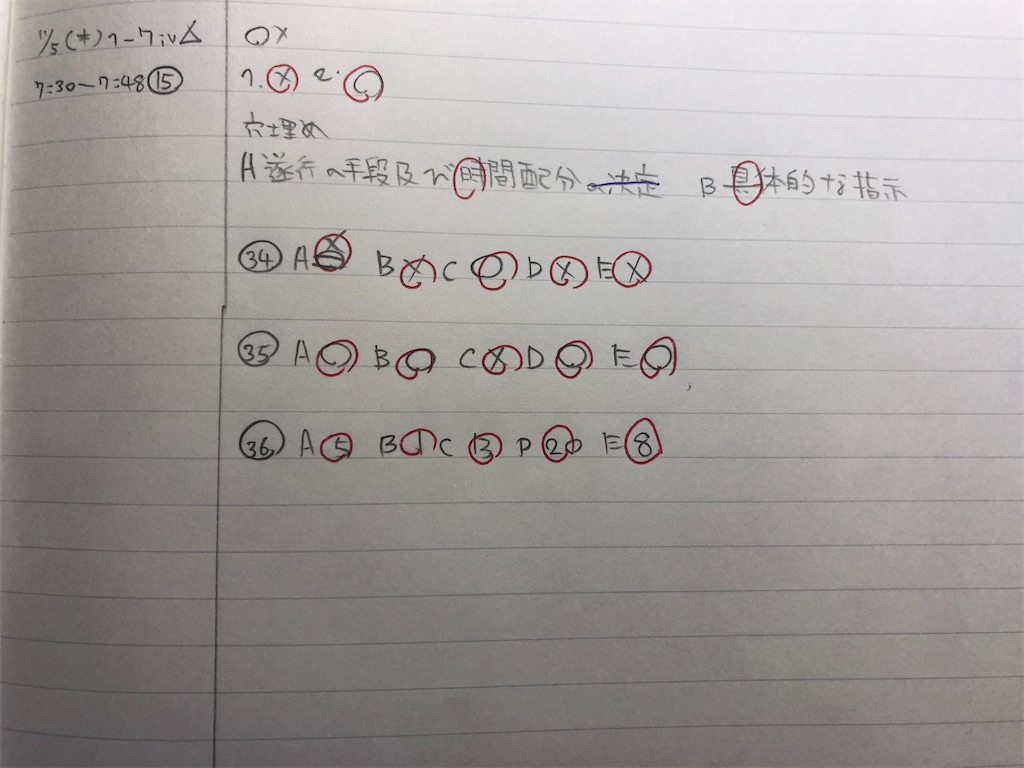 11/5(木)1-7ivム ○×
7:30〜7:48⑮ 1.× 2.○
穴埋め
A 遂行の手段及び時間配分の決定 B 具体的な指示
㉞ A× B× C○ D× E×
㉟ A○ B○ C× D○ E○
㊱ A5 B1 C13 D20 E8